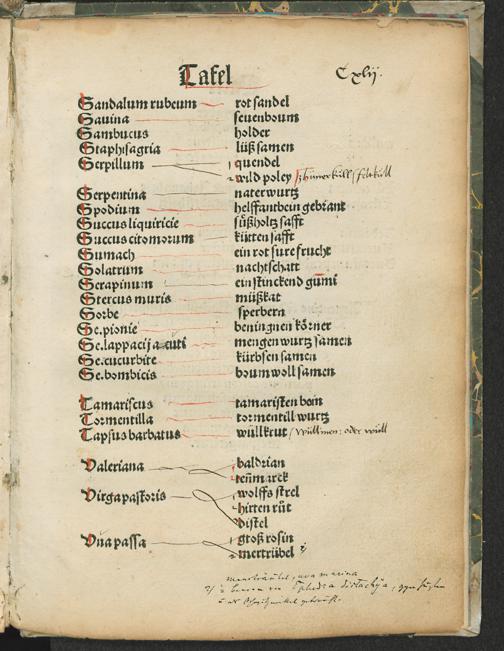 Tafel Cxlij.
Sandalum rubeum rot sandel
Sauina seuenboum
Sambucus holder
Staphisagria lüß samen
Serpillum quendel
wild poley
Serpentina naterwurtz
Spodium helffantbein gebrant
Succus liquiricie süßholtz safft
Succus citomorum kütten safft
Sumach ein rot sure frucht
Solatrum nachtschatt
Serapinum ein stinckend gūmi
Stercus muris müßkat
Sorbe sperbern
Se.pionie beningnen körner
Se.lappacij acuti mengenwurtz samen
Se.cucurbite kürbsen samen
Se.bombicis boumwoll samen
Tamariscus tamarisken bom
Tormentilla tormentill wurtz
Tapsus barbatus wüllkrut
Valeriana baldrian
tenmarck
Virga pastoris wolffs strel
hirten rüt
distel
Vua passa groß rosin
mertrübel
uva marina